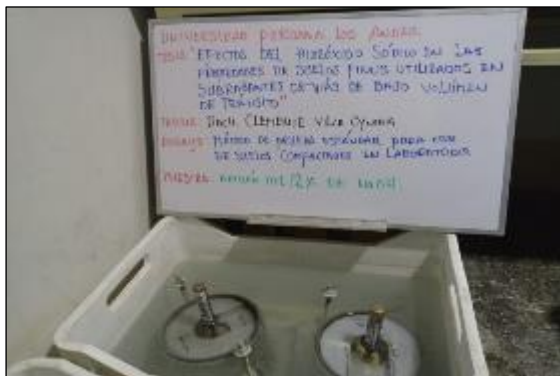 UNIVERSIDAD PERUANA LOS ANDES
TESIS: "EFECTOS DEL HIDRÓXIDO SÓDICO EN LAS
PROPIEDADES DE SUELOS FINOS UTILIZADOS EN
SUBRASANTES DE VÍAS DE BAJO VOLUMEN
DE TRÁNSITO"
BACH. CLEMENTE
ENSAYO: MÉTODO DE ENSAYO ESTÁNDAR PARA
DE SUELOS COMPACTADOS EN LABORATORIO
MUESTRA: 12% DE NAOH